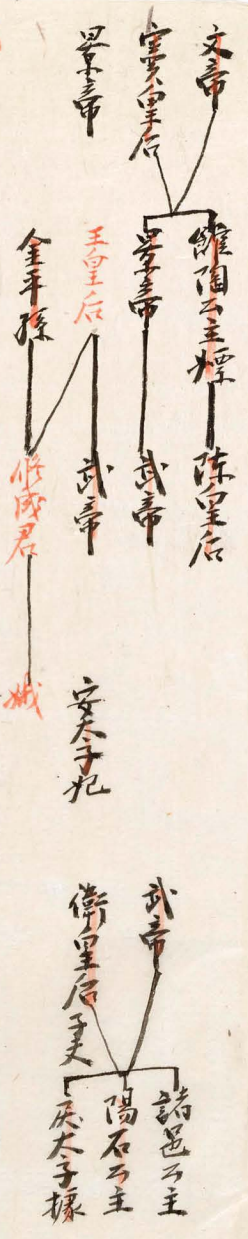 文帝
竇皇后
景帝
館陶公主嫖
景帝
王皇后
金王孫
陳皇后
武帝
武帝
修成君
娥
安太子妃
武帝
衛皇后子夫
諸邑公主
陽石公主
戾太子據